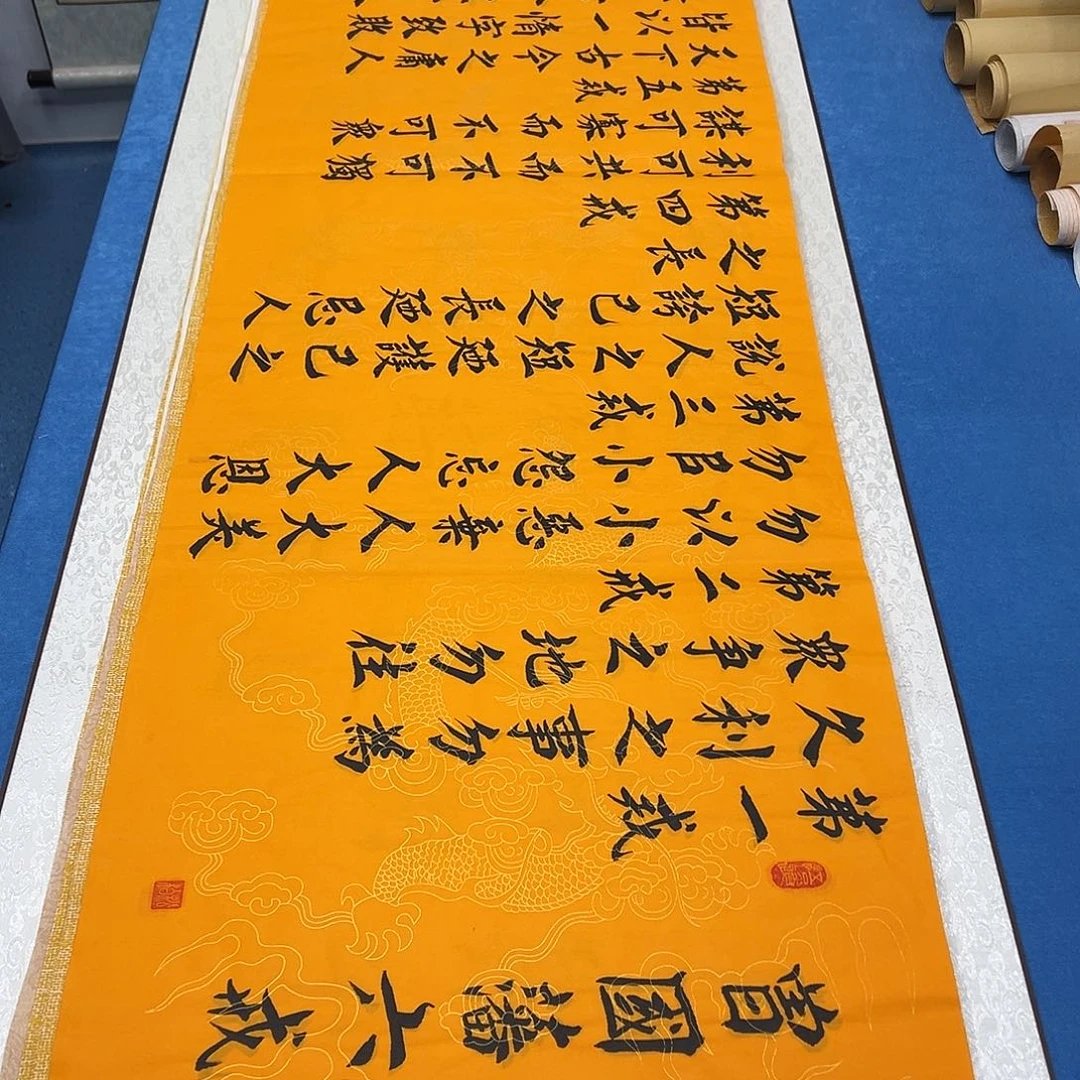 曾國藩六戒
第一戒
久利之事勿為
眾爭之地勿往
第二戒
勿以小惡棄人大美
勿㠯小怨忘人大恩
第三戒
說人之短廼護己之
短誇己之長廼忌人
之長
第四戒
利可共而不可獨
謀可寡而不可眾
第五戒
天下古今之庸人
皆以一惰字致敗